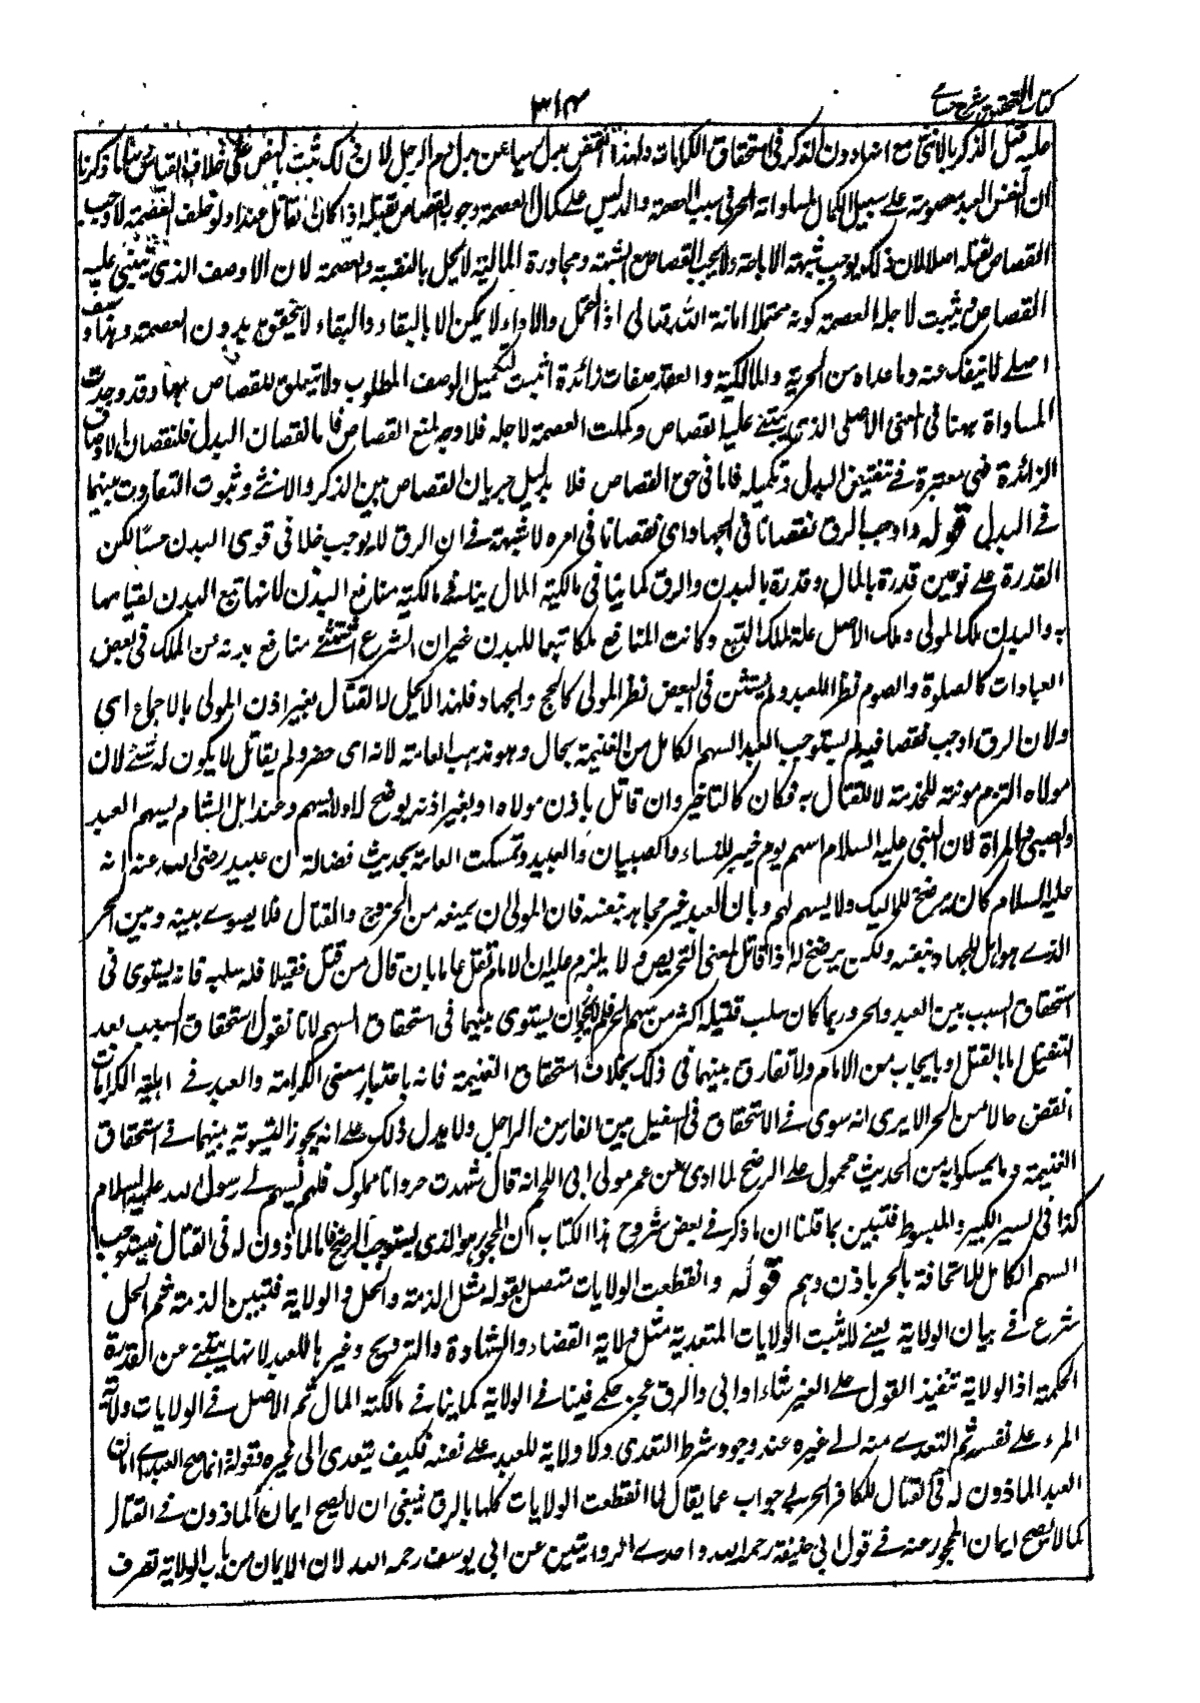 كتاب التحقيق شرح حسامي
٣١٤
عليه قتل الذكر بالانثى مع انها دون الذكر فى استحقاق الكرامات ولهذا انتقض بدل دمها عن بدل دم الرجل لان ذلك ثبت بالنص على خلاف القياس ما ذكرنا
ان نفس العبد معصومة على سبيل الكمال لمساواته الحر فى سبب العصمة والدليل على كمال العصمة وجوب القصاص بقتله اذا كان القاتل عبدا ولو تخلف العصمة لا وجب
القصاص بقتله اصلا لان ذلك يوجب شبهة الاباحة ولا يجب القصاص مع الشبهة ومجاورة المالية لا يخل بالنفسية والعصمة لان الاوصف الذى يبتنى عليه
القصاص ويثبت لاجله العصمة كونه محتملا امانة الله تعالى اذ التحمل والاداء لا يمكن الا بالبقاء والبقاء لا يتحقق بدون العصمة وهذا وصف
اصلى لا ينفك عنه وما عداه من الحرية والمالكية والعقل صفات زائدة اثبتت لتكميل الوصف المطلوب ولا يتعلق القصاص بها وقد وجدت
المساواة ههنا فى المعنى الاصلى الذى يبتنى عليه القصاص وكملت العصمة لاجله فلا وجه لمنع القصاص فاما نقصان البدل فلنقصان الاوصاف
الزائدة فهى معتبرة فى تنقيص البدل وتكميله فاما فى حق القصاص فلا بدليل جريان القصاص بين الذكر والانثى وثبوت التفاوت بينهما
فى البدل قوله واوجب الرق نقصانا فى الجهاد اى نقصانا فى امره لا شبهة فى ان الرق لا يوجب خللا فى قوى البدن حسا لكن
القدرة على نوعين قدرة بالمال وقدرة بالبدن والرق كما ينافى مالكية المال ينافى مالكية منافع البدن لانها تبع البدن لقيامها
به والبدن ملك المولى وملك الاصل علة لملك التبع وكانت المنافع ملكا تبعا للبدن غير ان الشرع استثنى منافع بدنه من الملك فى بعض
العبادات كالصلوة والصوم نظرا للعبد ولم يستثن فى البعض نظرا للمولى كالحج والجهاد فلهذا لا يحل له القتال بغير اذن المولى بالاجماع اى
ولان الرق اوجب نقصا فيه لم يستوجب العبد السهم الكامل من الغنيمة بحال وهو مذهب العامة لانه اى حضر ولم يقاتل لا يكون له شئ لان
مولاه التزم مونته للخدمة لا للقتال به فكان كالتاجر وان قاتل باذن مولاه او بغير اذنه يرضخ له ولا يسهم وعند اهل الشام يسهم العبد
والصبى والمراة لان النبى عليه السلام اسهم يوم خيبر للنساء والصبيان والعبيد وتمسكت العامة بحديث فضالة بن عبيد رضى الله عنه انه
عليه السلام كان يرضخ للمماليك ولا يسهم لهم وبان العبد غير مجاهد بنفسه فان للمولى ان يمنعه من الخروج والقتال فلا يسوى بينه وبين الحر
الذى هو اهل للجهاد بنفسه ولكن يرضخ له اذا قاتل لمعنى التحريص ولا يلزم عليه ان الامام نفل عاما بان قال من قتل قتيلا فله سلبه فانه يستوى فى
استحقاق السلب بين العبد والحر وربما كان سلب قتيله اكثر من سهم الحر فلم لا يجوز ان يستوى بينهما فى استحقاق السهم لانا نقول استحقاق السلب بعد
التنفيل اما بالقتل او بايجاب من الامام ولا تفارق بينهما فى ذلك بخلاف استحقاق الغنيمة فانه باعتبار معنى الكرامة والعبد فى اهلية الكرامات
انقص حالا من الحر الا يرى انه سوى فى الاستحقاق فى التنفيل بين الفارس والراجل ولا يدل ذلك على انه يجوز التسوية بينهما فى استحقاق
الغنيمة وما تمسكوا به من الحديث محمول على الرضخ لما روى عن عمير مولى ابى اللحم انه قال شهدت حروبا وانا مملوك فلم يسهم لى رسول الله عليه السلام
كذا فى السير الكبير والمبسوط فتبين بما قلنا ان ما ذكر فى بعض شروح هذا الكتاب ان المحجور هو الذى يستوجب الرضخ فاما الماذون له فى القتال فيستوجب
السهم الكامل للالتحاقه بالحر باذن وهم قوله وانقطعت الولايات متصل بقوله مثل الذمة والحل والولاية فتبين الذمة ثم الحل
شرع فى بيان الولاية يعنى لا يثبت الولايات المتعدية مثل ولاية القضاء والشهادة والتزويج وغيرها للعبد لانها تبتنى عن القدرة
الحكمية اذ الولاية تنفيذ القول على الغير شاء او ابى والرق عجز حكمى فينافى الولاية كما ينافى مالكية المال ثم الاصل فى الولايات ولاية
المرء على نفسه ثم التعدى منه الى غيره عند وجود شرط التعدى ولا ولاية للعبد على نفسه فكيف يتعدى الى غيره وقوله انما صح العبد اى امان
العبد الماذون له فى القتال للكافر الحربى جواب عما يقال لما انقطعت الولايات كلها بالرق ينبغى ان لا يصح ايمان الماذون فى القتال
كما لا يصح ايمان المحجور عنه فى قول ابى حنيفة رحمه الله واحدى الروايتين عن ابى يوسف رحمه الله لان الايمان من باب الولاية تصرف